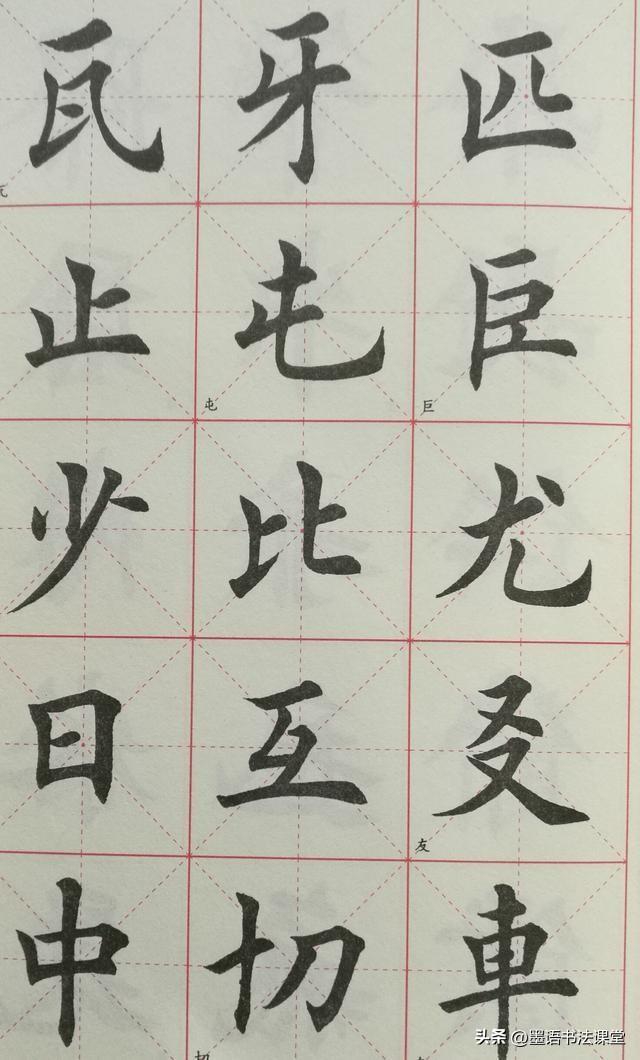 瓦 牙 匹
止 屯 臣
屯 巨
少 比 尤
日 互 㕛
友
中 切 車
头条 @墨语书法课堂